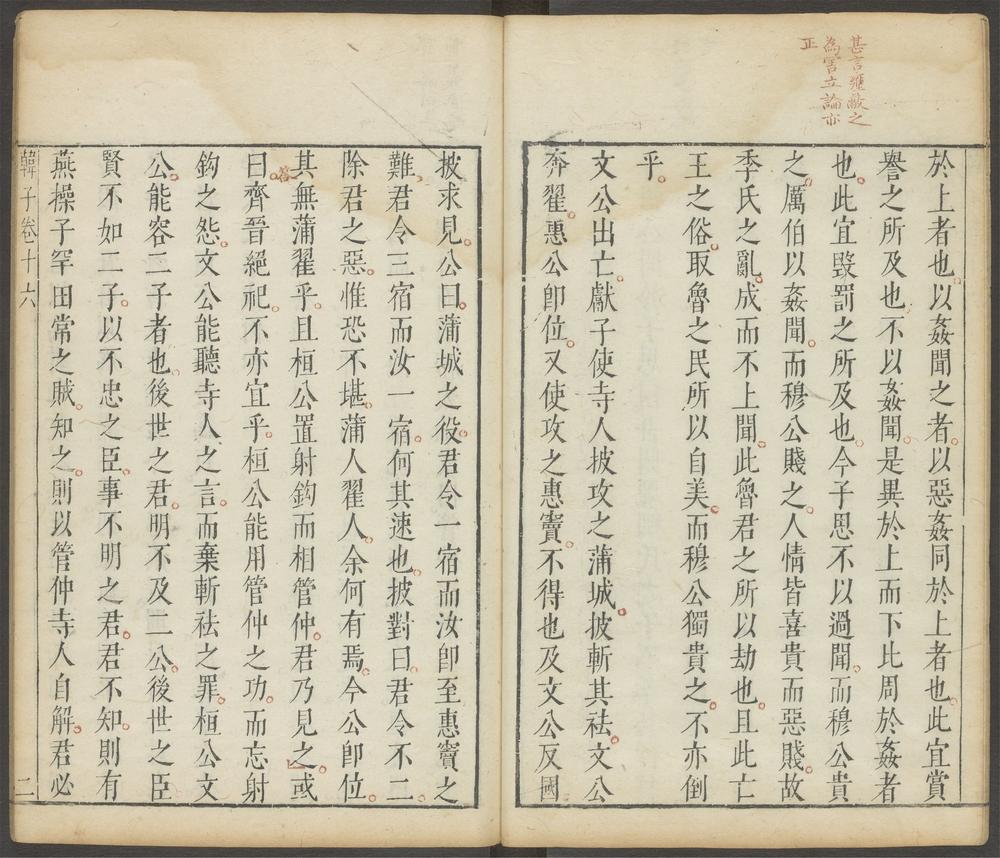 甚言壅蔽之
為害立論亦
正
於上者也以姦聞之者以惡姦同於上者也此宜賞
譽之所及也不以姦聞是異於上而下比周於姦者
也此宜毀罰之所及也今子思不以過聞而穆公貴
之厲伯以姦聞而穆公賤之人情皆喜貴而惡賤故
季氏之亂成而不上聞此魯君之所以劫也且此亡
王之俗取魯之民所以自美而穆公獨貴之不亦倒
乎
文公出亡獻子使寺人披攻之蒲城披斬其袪文公
奔翟惠公即位又使攻之惠竇不得也及文公反國
披求見公曰蒲城之役君令一宿而汝即至惠竇之
難君令三宿而汝一宿何其速也披對曰君令不二
除君之惡惟恐不堪蒲人翟人余何有焉今公即位
其無蒲翟乎且桓公置射鉤而相管仲君乃見之或
曰齊晉絕祀不亦宜乎桓公能用管仲之功而忘射
鉤之怨文公能聽寺人之言而棄斬袪之罪桓公文
公能容二子者也後世之君明不及二公後世之臣
賢不如二子以不忠之臣事不明之君君不知則有
燕操子罕田常之賊知之則以管仲寺人自解君必
韓子卷十六
二